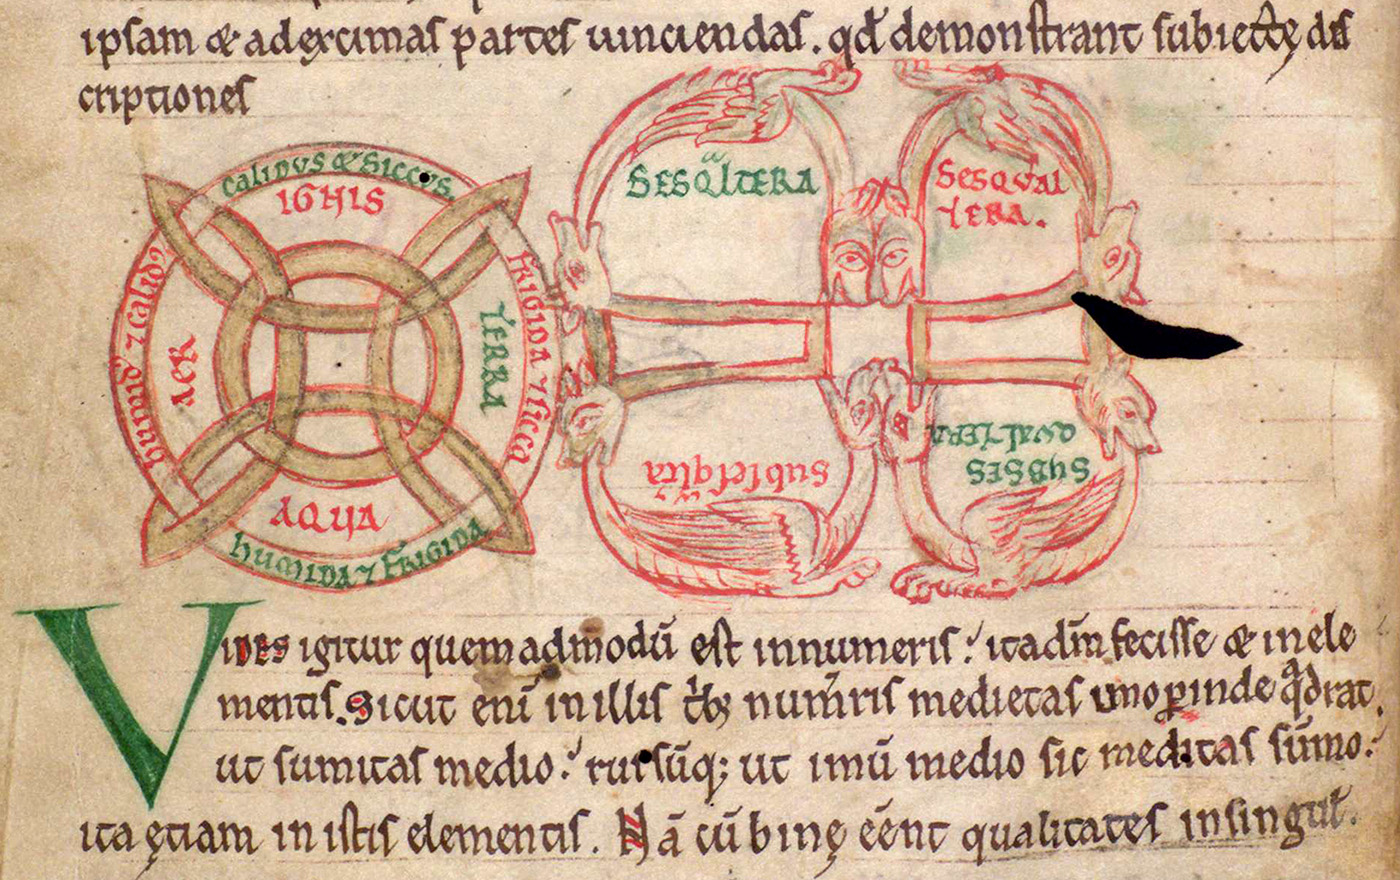 ipsam & ad extimas partes uinciendas. qd̄ demonstrant subiectę dis
criptiones
calidus & siccus
IGNIS
humid' ⁊ calid'
AER
TERRA
frigida ⁊ sicca
AQUA
humida ⁊ frigida
SESQᵃLTERA
SESQUAL
TERA.
Subsesq̄lt̄a
SUBSES
QUALTERA
VIDES igitur quemadmodū est in numeris. ita dm̄ fecisse & in ele
mentis. Sicut enī in illis tⁱb; num̄ris medietas imo ꝑinde qᵃdrat,
ut sumitas medio. rursūq; ut imū medio sic medietas sūmo.
ita ętiam in istis elementis. Nā cū binę eēnt qualitates in singul̄.